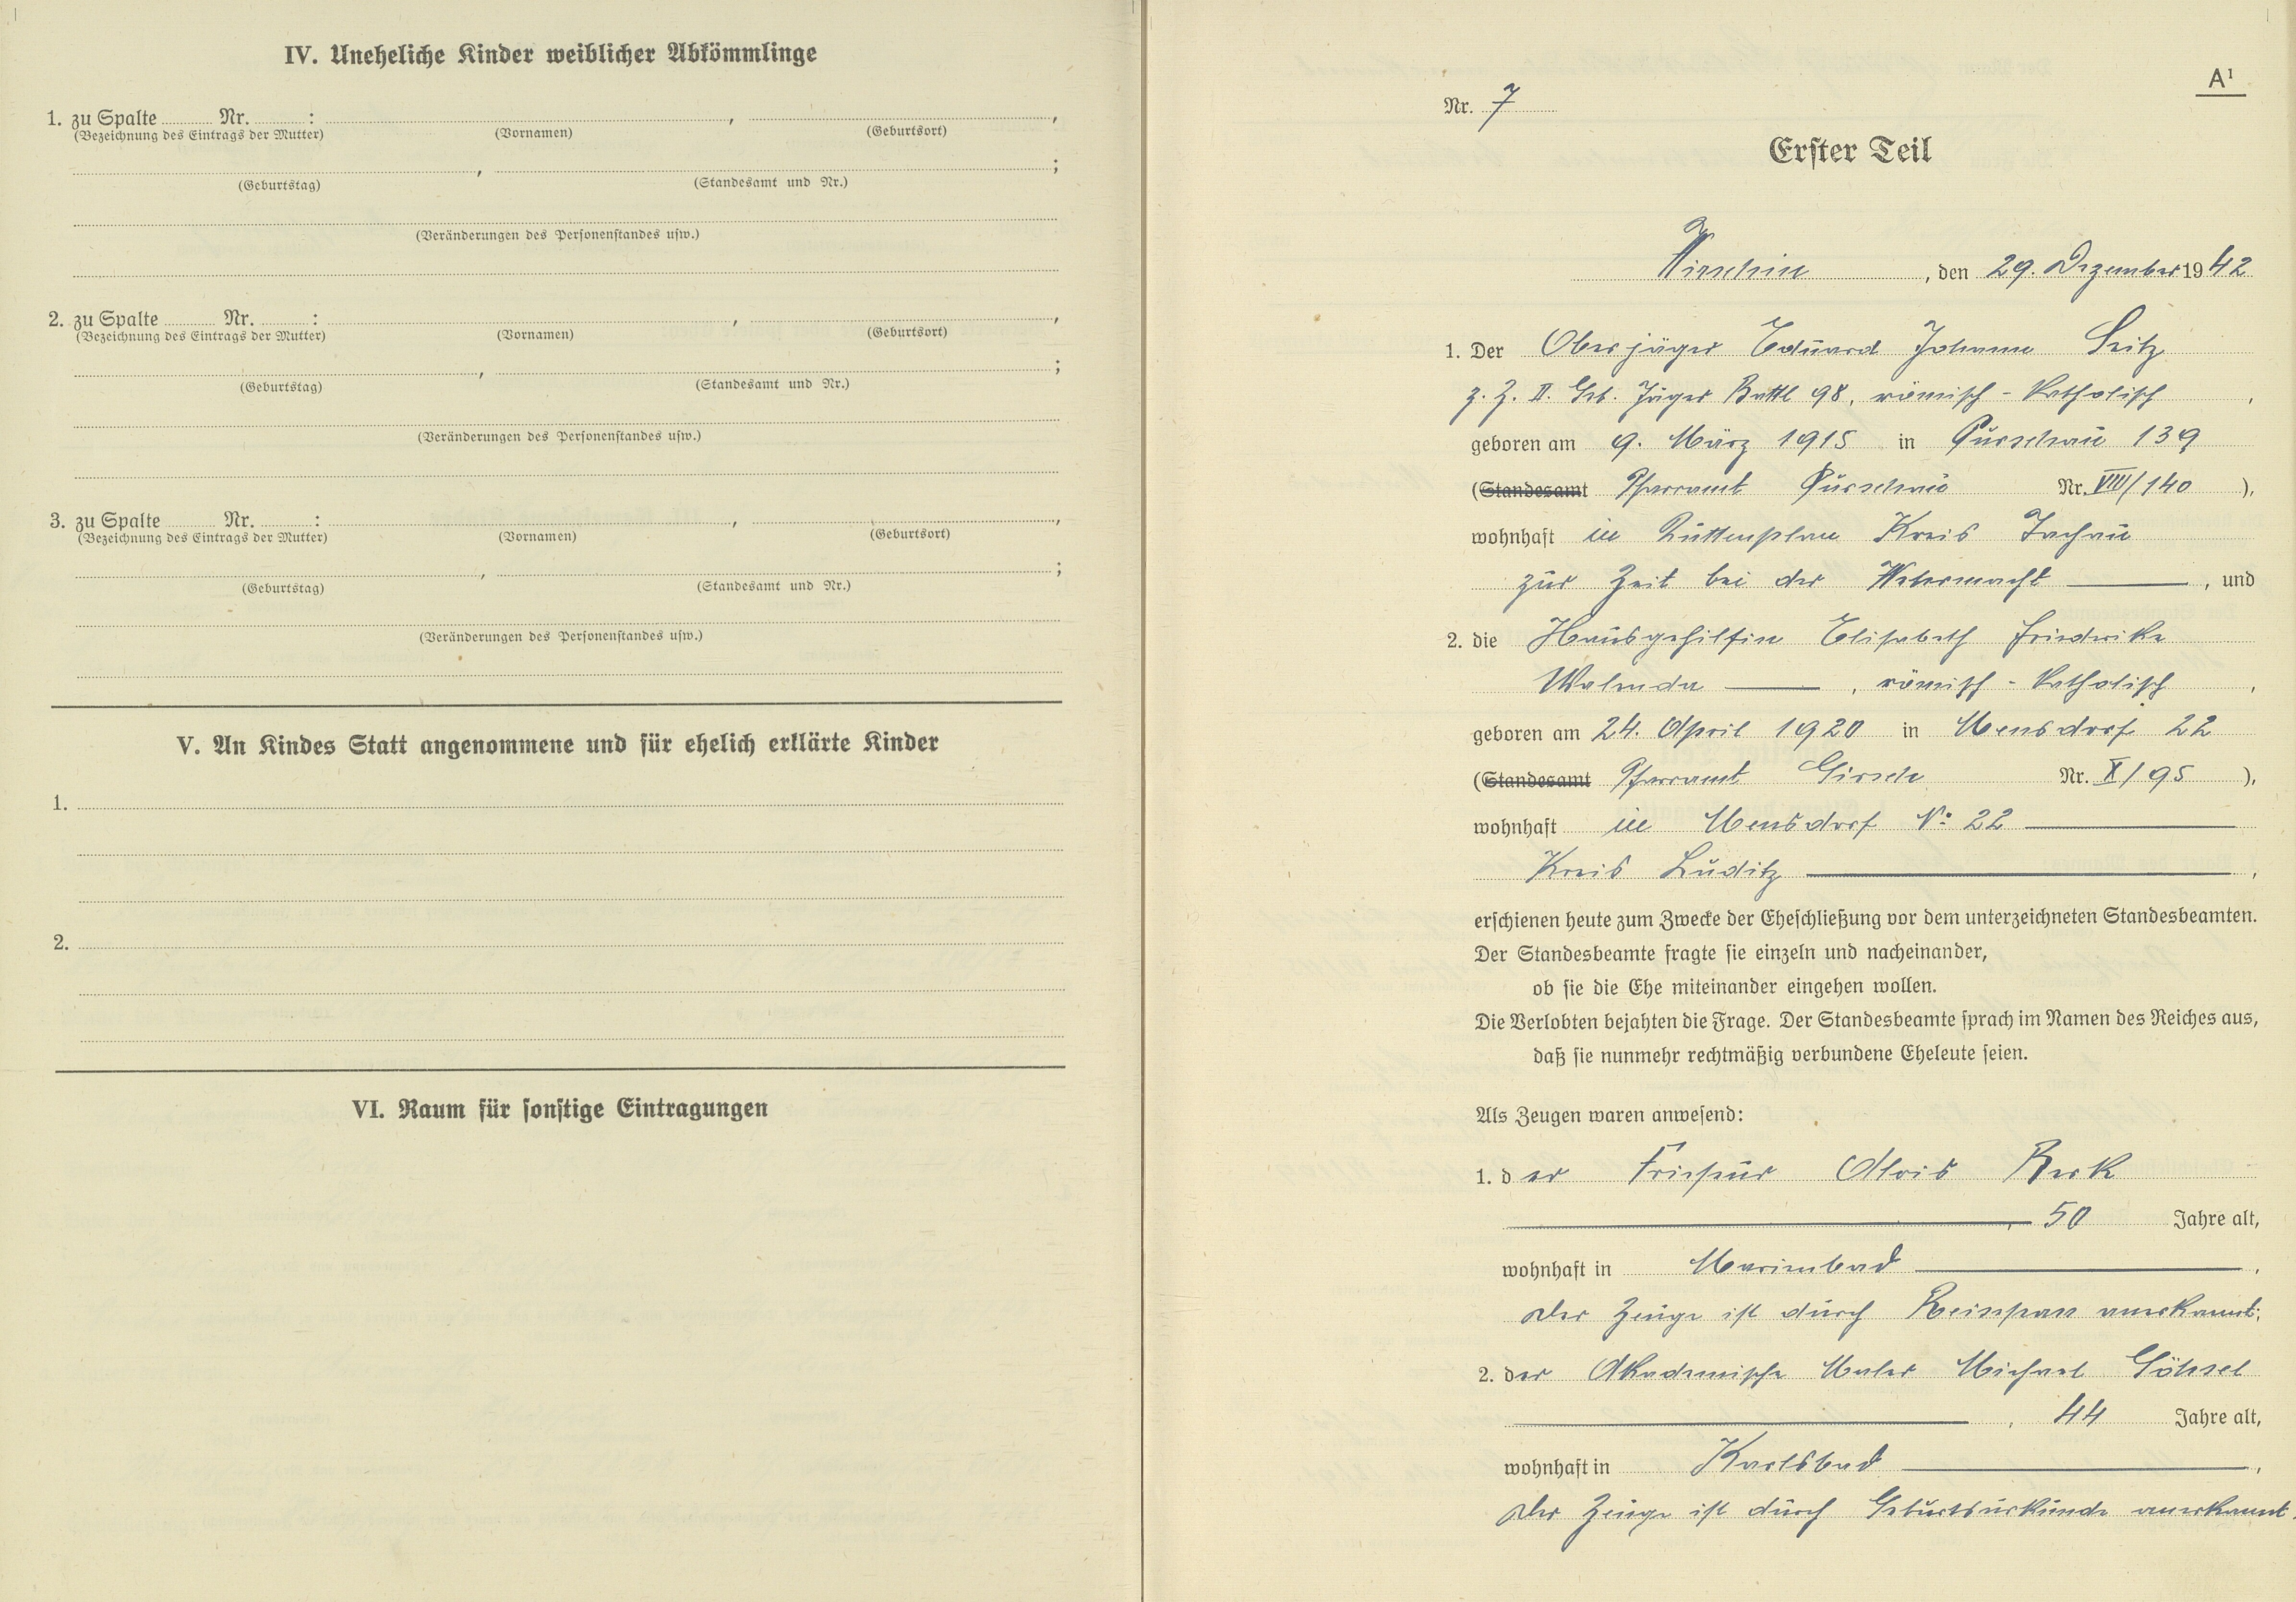 IV. Uneheliche Kinder weiblicher Abkömmlinge
1. zu Spalte ........ Nr. ........ : ........ , ........ ,
(Bezeichnung des Eintrags der Mutter) (Vornamen) (Geburtsort)
........ , ........ ;
(Geburtstag) (Standesamt und Nr.)
(Veränderungen des Personenstandes usw.)
2. zu Spalte ........ Nr. ........ : ........ , ........ ,
(Bezeichnung des Eintrags der Mutter) (Vornamen) (Geburtsort)
........ , ........ ;
(Geburtstag) (Standesamt und Nr.)
(Veränderungen des Personenstandes usw.)
3. zu Spalte ........ Nr. ........ : ........ , ........ ,
(Bezeichnung des Eintrags der Mutter) (Vornamen) (Geburtsort)
........ , ........ ;
(Geburtstag) (Standesamt und Nr.)
(Veränderungen des Personenstandes usw.)
V. An Kindes Statt angenommene und für ehelich erklärte Kinder
1.
2.
VI. Raum für sonstige Eintragungen
A¹
Nr. 7
Erster Teil
, den 29. Dezember 1942
1. Der Oberjäger Eduard Johann Seitz
z. Z. II. Geb. Jäger Battl 98, römisch-katholisch ,
geboren am 9. März 1915 in Kurschau 139
(Standesamt Pfarramt Kurschau Nr. VIII/140 ),
wohnhaft in Kuttenplan Kreis Tachau
zur Zeit bei der Wehrmacht , und
2. die Hausgehilfin Elisabeth Friederike
Walenda , römisch-katholisch ,
geboren am 24. April 1920 in Uensdorf 22
(Standesamt Pfarramt Girsch Nr. X/95 ),
wohnhaft in Uensdorf No 22
Kreis Luditz ,
erschienen heute zum Zwecke der Eheschließung vor dem unterzeichneten Standesbeamten.
Der Standesbeamte fragte sie einzeln und nacheinander,
ob sie die Ehe miteinander eingehen wollen.
Die Verlobten bejahten die Frage. Der Standesbeamte sprach im Namen des Reiches aus,
daß sie nunmehr rechtmäßig verbundene Eheleute seien.
Als Zeugen waren anwesend:
1. der Friseur Alois Berk
, 50 Jahre alt,
wohnhaft in Marienbad ,
der Zeuge ist durch Reisepass anerkannt;
2. der Akademische Maler Michael Göhsel
, 44 Jahre alt,
wohnhaft in Karlsbad ,
der Zeuge ist durch Geburtsurkunde anerkannt.